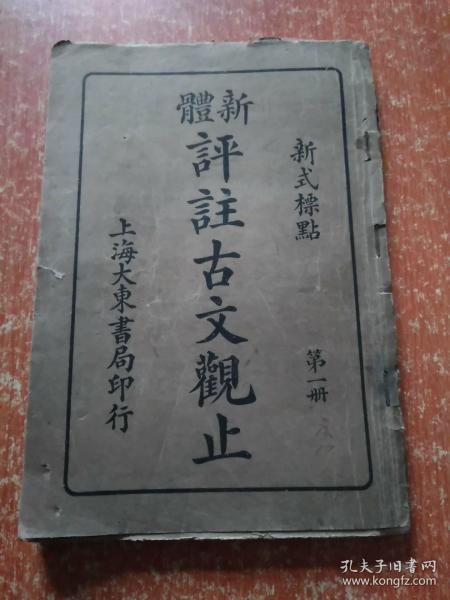 新式標點
第一册
新體
評註古文觀止
上海大東書局印行
孔夫子旧书网
www.kongfz.com